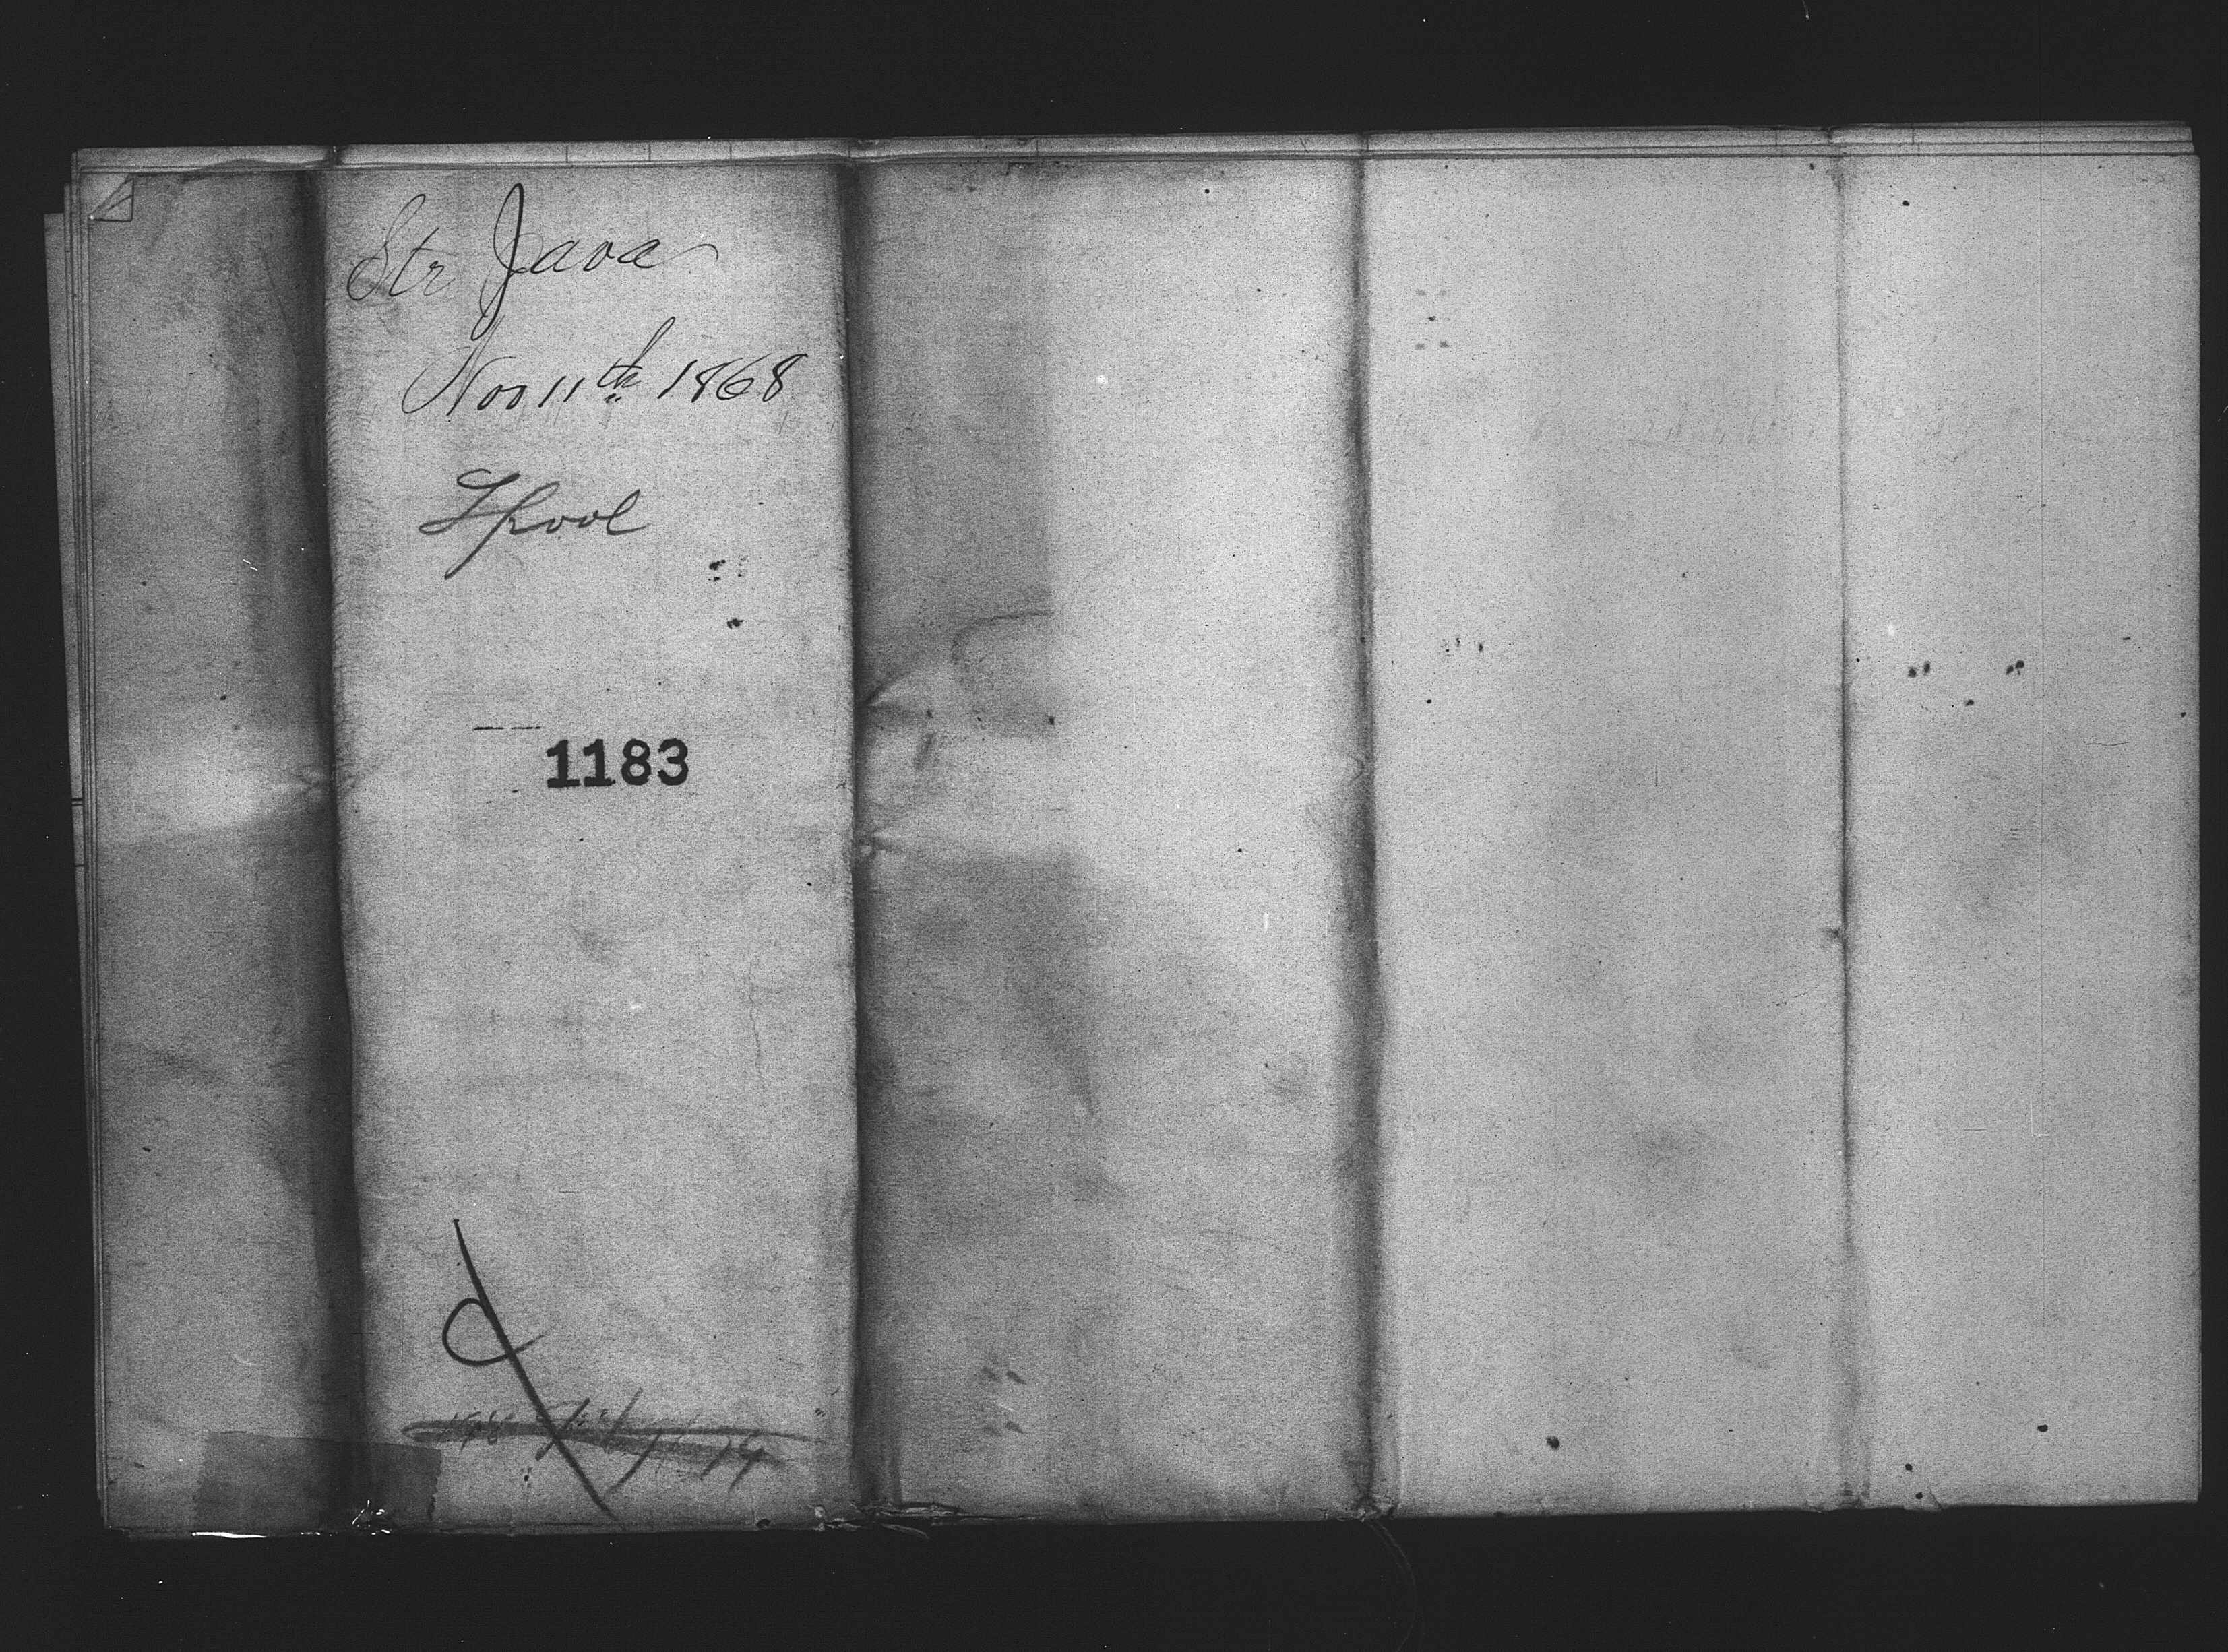 Str Java
Nov 11th 1868
Lpool
1183